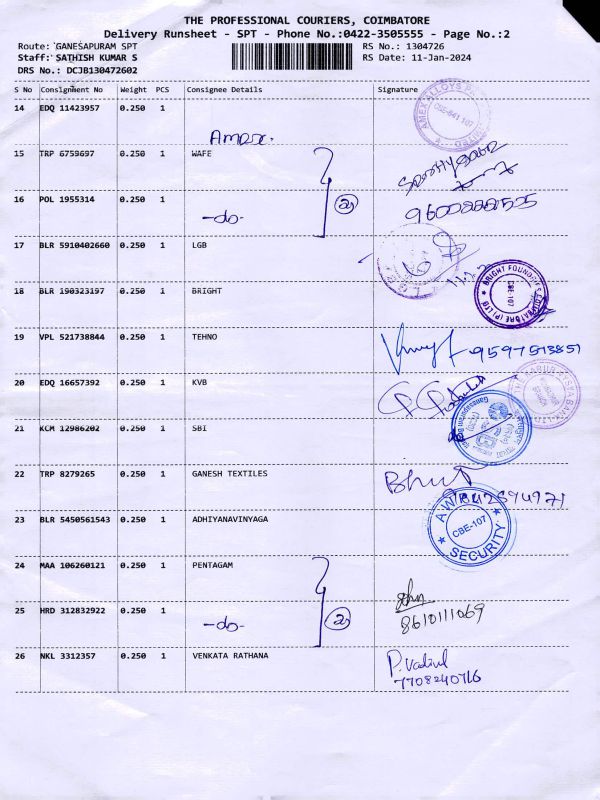 THE PROFESSIONAL COURIERS, COIMBATORE
Delivery Runsheet - SPT - Phone No.:0422-3505555 - Page No.:2
Route: GANESAPURAM SPT RS No.: 1304726
Staff: SATHISH KUMAR S RS Date: 11-Jan-2024
DRS No.: DCJB130472602
S No Consignment No Weight PCS Consignee Details Signature
14 EDQ 11423957 0.250 1
Amex. AMEX ALLOYS P LIMITED CBE-641 107
15 TRP 6759697 0.250 1 WAFE
16 POL 1955314 0.250 1
-do- 2
17 BLR 5910402660 0.250 1 LGB
18 BLR 190323197 0.250 1 BRIGHT
BRIGHT FOUNDRIES COIMBATORE (P) LTD CBE-107
19 VPL 521738844 0.250 1 TEHNO
20 EDQ 16657392 0.250 1 KVB
21 KCM 12986202 0.250 1 SBI
22 TRP 8279265 0.250 1 GANESH TEXTILES
23 BLR 5450561543 0.250 1 ADHIYANAVINYAGA
CBE-107 SECURITY
24 MAA 106260121 0.250 1 PENTAGAM
25 HRD 312832922 0.250 1
-do- 2
8610111069
26 NKL 3312357 0.250 1 VENKATA RATHANA
P. Vadivel
7708240716